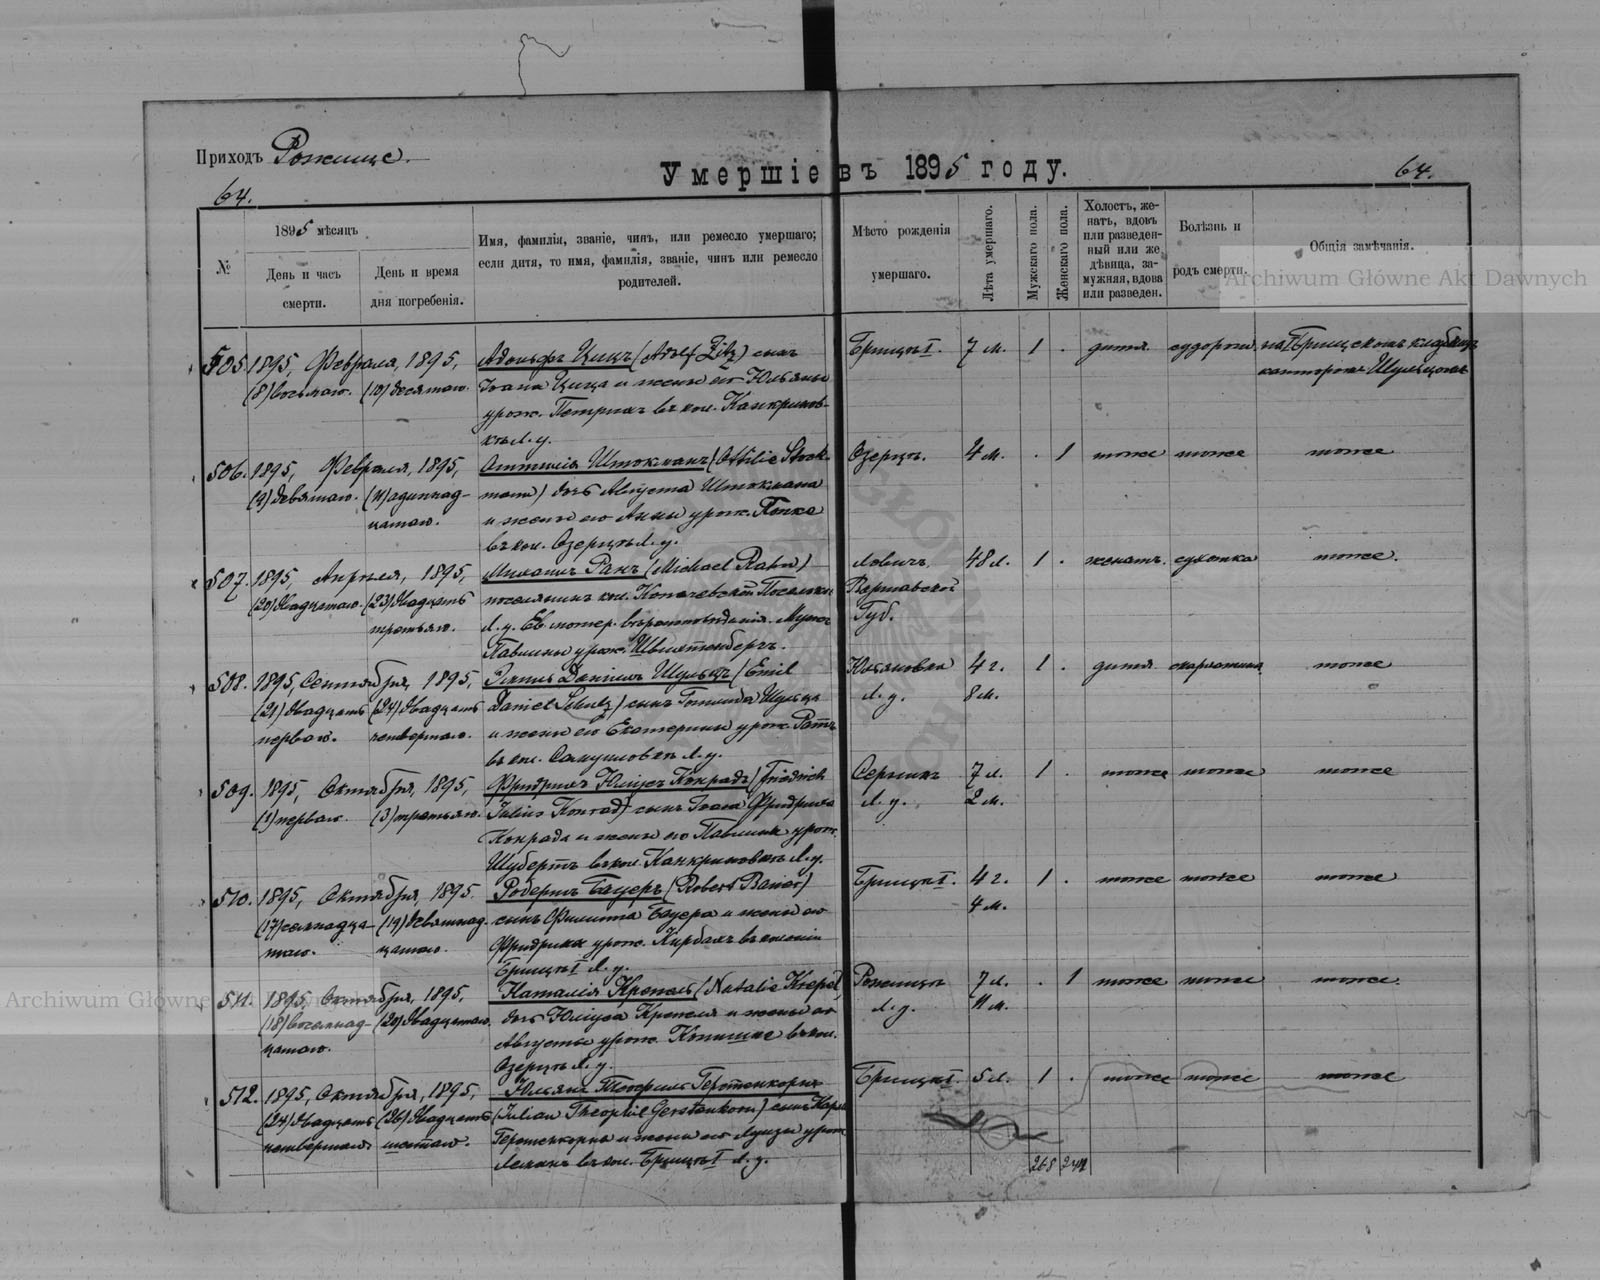 Приходъ Рожище.
Умершіе въ 1895 году.
64.
64.
№
1895 мѣсяцъ
День и часъ
смерти.
День и время
дня погребенія.
Имя, фамилія, званіе, чинъ, или ремесло умершаго;
если дитя, то имя, фамилія, званіе, чинъ или ремесло
родителей.
Мѣсто рожденія
умершаго.
Лѣта умершаго.
Мужскаго пола.
Женскаго пола.
Холостъ, же-
натъ, вдовъ
или разведен-
ный или же
дѣвица, за-
мужняя, вдова
или разведен.
Болѣзнь и
родъ смерти.
Общія замѣчанія.
Archiwum Główne Akt Dawnych
505. 1895, Февраля, 1895, Адольфъ Цицъ (Adolf Zitz) сынъ Брищъ I. 7 м. 1 . дитя судороги на I Брищскомъ кладбищѣ
(8) восьмаго. (10) десятаго. Іоана Цица и жены его Юльяны канторомъ Шульцомъ
урож. Петрихъ въ кол. Канкринов-
кѣ Л. у.
506. 1895, Февраля, 1895, Оттилія Штокманъ (Ottilie Stock- Озерцъ. 4 м. . 1 тоже тоже тоже
(9) девятаго. (11) одиннад- mann) дочь Августа Штокмана
цатаго. и жены его Анны урож. Попке
въ кол. Озерцѣ Л. у.
507. 1895, Апрѣля, 1895, Михаилъ Ранъ (Michael Rahn) Ловичъ 48 л. 1 . женатъ сухотка тоже.
(20) двадцатаго. (23) двадцать поселянинъ кол. Копачевской Поселки Варшавской
третьяго. Л. у. Ев. лютер. вѣроисповѣданія. Мужъ Губ.
Павлины урож.
508. 1895, Сентября, 1895, Эмиль Даніилъ Шульцъ (Emil Юльяновка 4 г. 1 . дитя скарлатина тоже
(21) двадцать (24) двадцать Daniel Schulz) сынъ Готлиба Шульца Л. у. 8 м.
перваго. четвертаго. и жены его Екатерины урож. Ратъ
въ кол. Л. у.
509. 1895, Октября, 1895, Фридрихъ Юліусъ Конрадъ (Friedrich Серникъ 7 л. 1 . тоже тоже тоже
(1) перваго. (3) третьяго. Julius Konrad) сынъ Іоана Фридриха Л. у. 2 м.
Конрада и жены его Павлины урож.
Шубертъ въ кол. Канкриновкѣ Л. у.
510. 1895, Октября, 1895. Робертъ Бауеръ (Robert Bauer) Брищъ I. 4 г. 1 . тоже тоже тоже
(17) семнадца- (19) девятнад- сынъ Филиппа Бауера и жены его 4 м.
таго. цатаго. Фридрики урож. Кирбахъ въ колоніи
Брищѣ I Л. у.
511. 1895, Октября, 1895, Наталія Крепель (Natalie Krepel) Рожищъ 7 л. . 1 тоже тоже тоже.
(18) восемнад- (20) двадцатаго. дочь Юліуса Крепеля и жены его Л. у. 11 м.
цатаго. Августы урож. въ кол.
Озерцѣ Л. у.
512. 1895, Октября, 1895, Юльянъ Теофилъ Герстенкорнъ Брищъ I. 5 л. 1 . тоже тоже тоже
(24) двадцать (26) двадцать (Julian Theophil Gerstenkorn) сынъ Карла
четвертаго. шестаго. Герстенкорна и жены его Луизы урож.
Леманъ въ кол. Брищѣ I Л. у.
268 244
Archiwum Główne Akt Dawnych